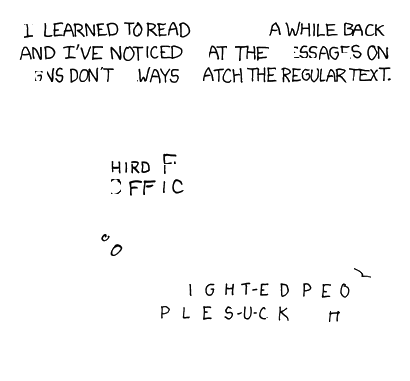 I LEARNED TO READ A WHILE BACK
AND I'VE NOTICED AT THE SSAGES ON
DON'T WAYS ATCH THE REGULAR TEXT.
HIRD F
OFFIC
I G H T-E D P E O
P L E S-U-C K